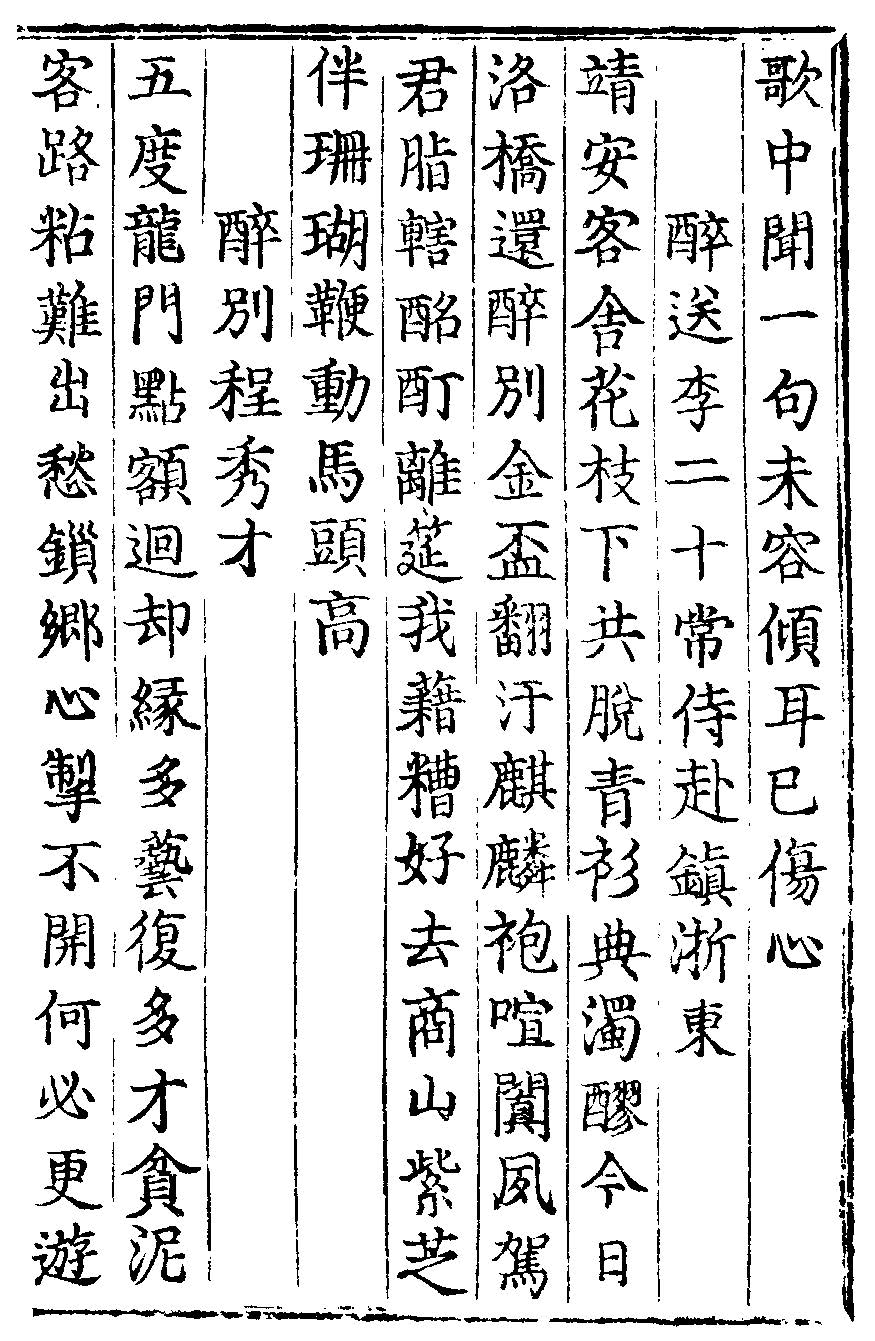 歌中聞一句未容傾耳已傷心
醉送李二十常侍赴鎮浙東
靖安客舍花枝下共脫青衫典濁醪今日
洛橋還醉別金盃翻汙麒麟袍喧闐夙駕
君脂轄酩酊離筵我藉糟好去商山紫芝
伴珊瑚鞭動馬頭高
醉別程秀才
五度龍門點額迴却緣多藝復多才貧泥
客路粘難出愁鎖鄉心掣不開何必更遊